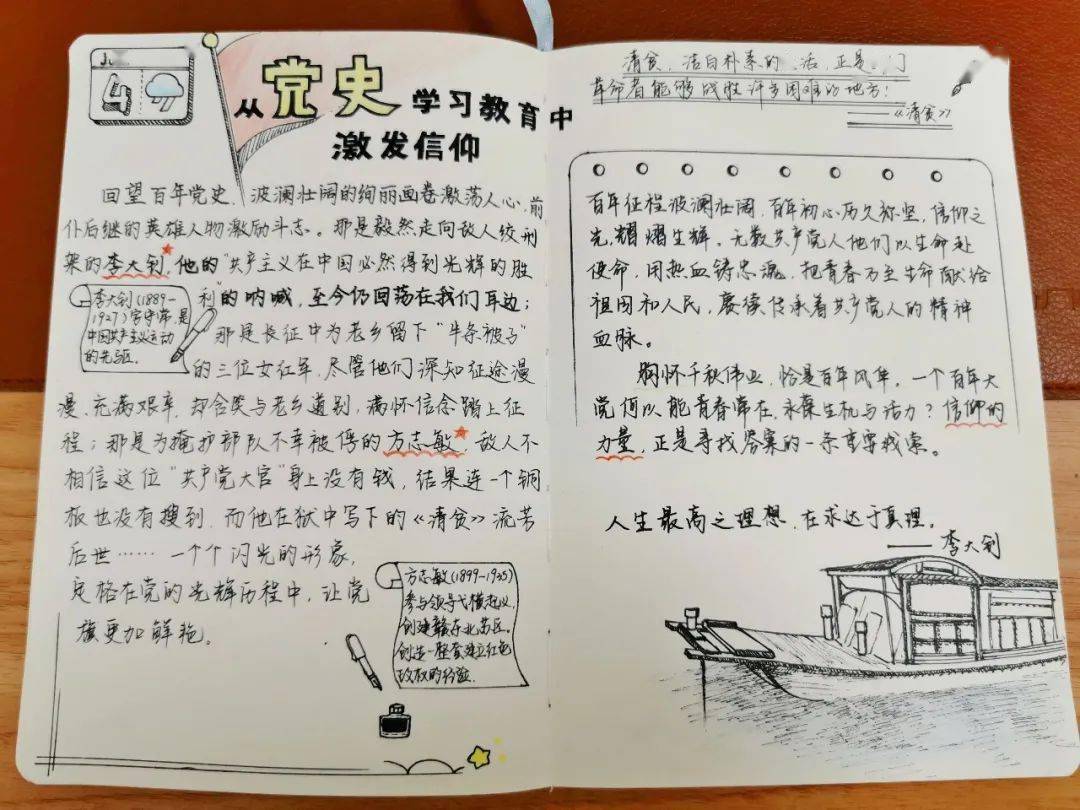 4
从党史学习教育中
激发信仰
回望百年党史，波澜壮阔的绚丽画卷激荡人心，前
仆后继的英雄人物激励斗志。那是毅然走向敌人绞刑
架的李大钊，他的“共产主义在中国必然得到光辉的胜
利”的呐喊，至今仍回荡在我们耳边；
李大钊(1889-
1927)字守常，是
中国共产主义运动
的先驱。
那是长征中为老乡留下“半条被子”
的三位女红军，尽管他们深知征途漫
漫、充满艰辛，却含笑与老乡道别，满怀信念踏上征
程；那是为掩护部队不幸被俘的方志敏，敌人不
相信这位“共产党大官”身上没有钱，结果连一个铜
板也没有搜到，而他在狱中写下的《清贫》流芳
后世……一个个闪光的形象，
定格在党的光辉历程中，让党
旗更加鲜艳。
方志敏(1899-1935)
参与领导弋横起义，
创建赣东北苏区。
创造一整套建立红色
政权的经验。
清贫，洁白朴素的 活，正是 门
革命者能够战胜许多困难的地方！
——《清贫》
百年征程波澜壮阔，百年初心历久弥坚，信仰之
光，耀熠生辉。无数共产党人他们以生命赴
使命，用热血铸忠魂，把青春乃至生命献给
祖国和人民，赓续传承着共产党人的精神
血脉。
胸怀千秋伟业，恰是百年风华。一个百年大
党何以能青春常在、永葆生机与活力？信仰的
力量，正是寻找答案的一条重要线索。
人生最高之理想，在求达于真理。
——李大钊